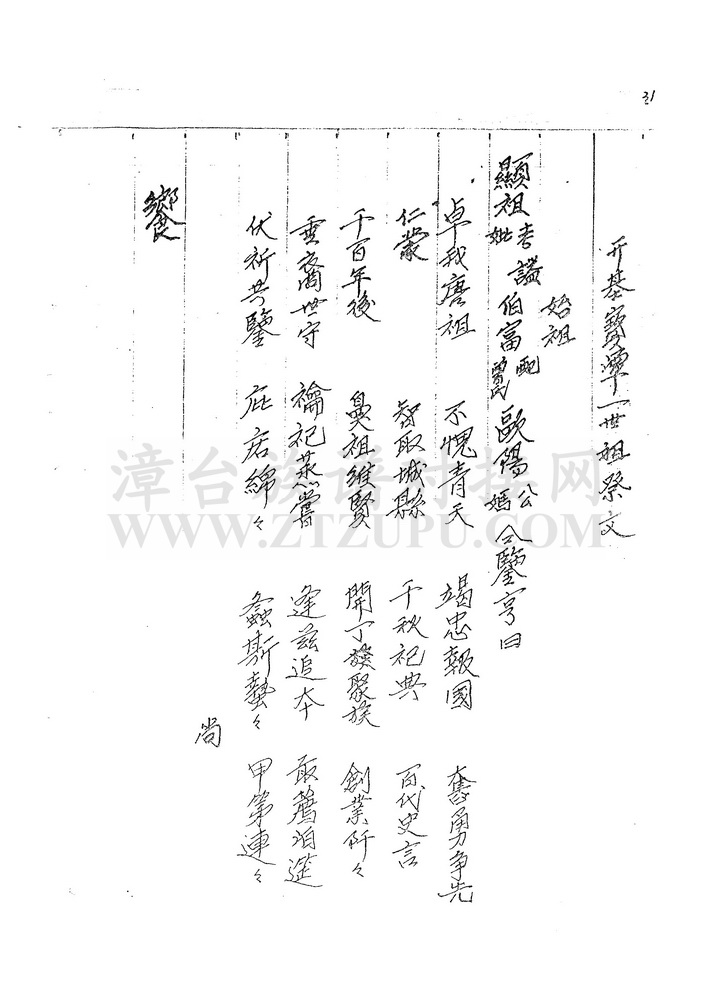 31
开基寶潭一世祖祭文
始祖
顯祖考妣諡伯富配曾氏歐陽公媽合鑒亨曰
卓我唐祖 不愧青天 竭忠報國 奮勇争先
仁 智取城縣 千秋祀典 百代史言
千百年後 鼻祖維賢 開丁聚族 創業阡々
雲裔世守 禴祀蒸嘗 逢兹追本 敢薦
伏祈共鑒 庇居綿々 螽斯蟄々 甲第連々
尚
饗
漳台族谱对接网
WWW.ZTZUPU.COM